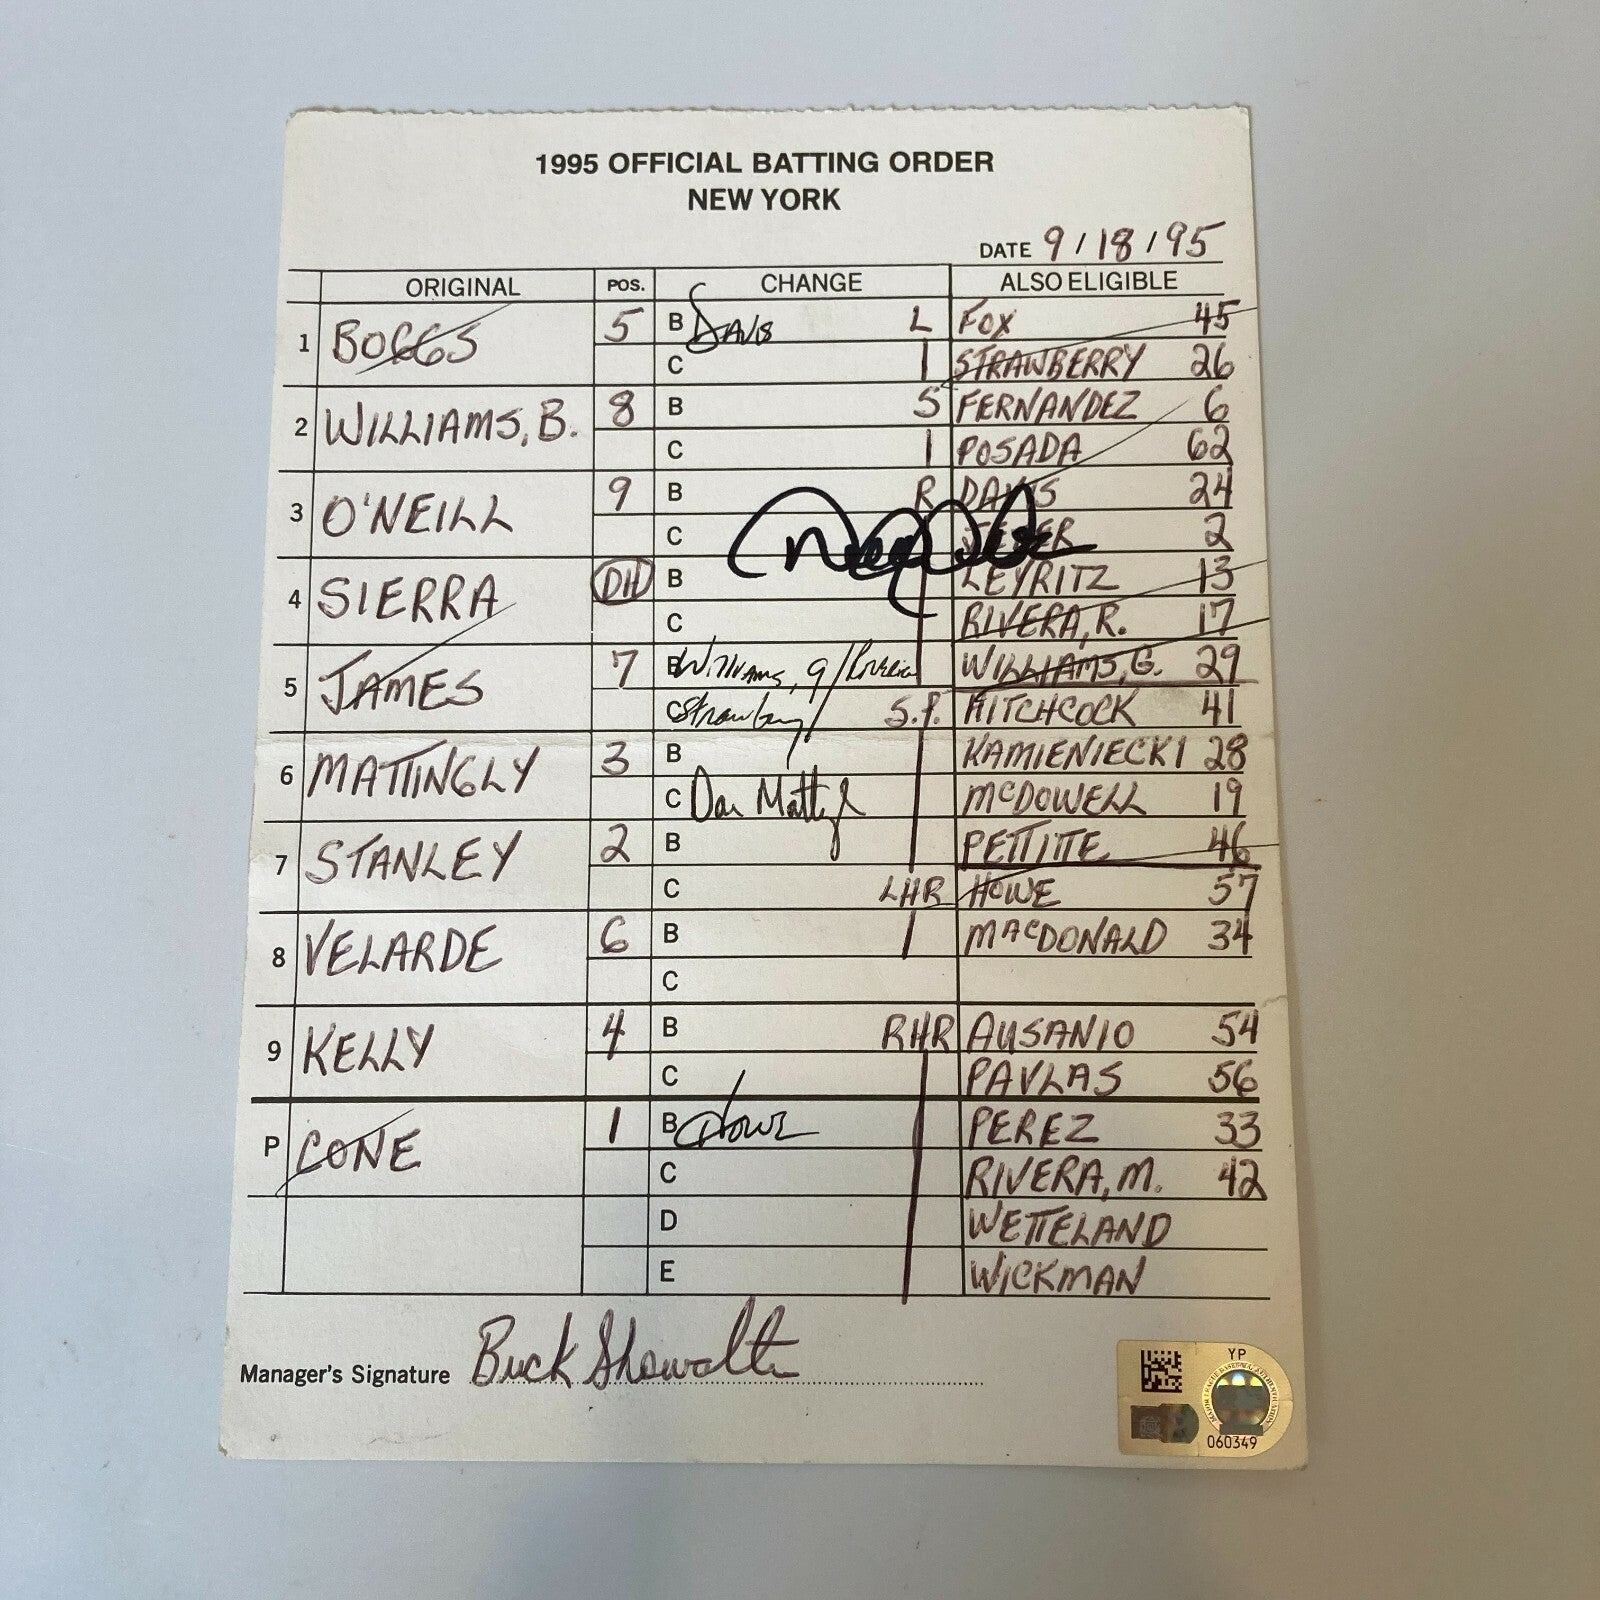 1995 OFFICIAL BATTING ORDER
NEW YORK
DATE 9/18/95
ORIGINAL POS. CHANGE ALSO ELIGIBLE
1 BOGGS 5 B DAVIS L FOX 45
C STRAWBERRY 26
2 WILLIAMS, B. 8 B S FERNANDEZ 6
C POSADA 62
3 O'NEILL 9 B R DAVIS 24
C JETER 2
4 SIERRA DH B LEYRITZ 13
C RIVERA, R. 17
5 JAMES 7 B Williams, G / Rivera WILLIAMS, G. 29
C Strawberry S.P. HITCHCOCK 41
6 MATTINGLY 3 B KAMIENIECKI 28
C Don Mattingly McDOWELL 19
7 STANLEY 2 B PETTITTE 46
C LHR HOWE 57
8 VELARDE 6 B MACDONALD 34
C
9 KELLY 4 B RHR AUSANIO 54
C PAVLAS 56
P CONE 1 B Howe PEREZ 33
C RIVERA, M. 42
D WETTELAND
E WICKMAN
Manager's Signature Buck Showalter
YP
060349